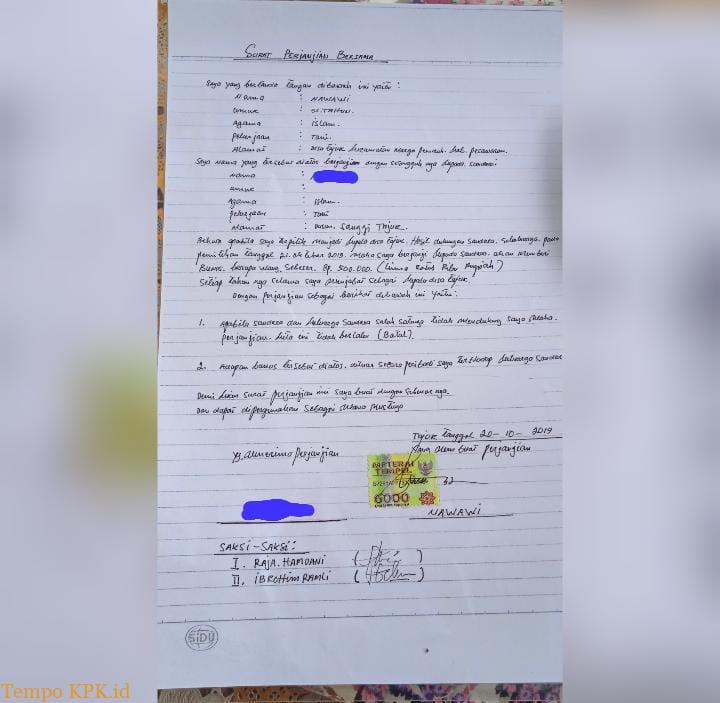 SURAT PERJANJIAN BERSAMA
Saya yang bertanda tangan dibawah ini yaitu :
Nama : NAWAWI
umur : TAHUN.
Agama : islam.
pekerjaan : Tani.
Alamat : Desa Tajuk kecamatan kab. pesawaran.
Saya Nama yang tersebut diatas berjanji dengan kepada saudara:
Nama :
umur :
Agama : Islam.
pekerjaan : Tani
Alamat : Dusun. Sanggi Tajuk.
Bahwa apabila saya terpilih menjadi kepala desa Tajuk. Hasil dukungan saudara. sekeluarga. pada
pemilihan tanggal 21. oktober 2019. maka saya berjanji kepada saudara. akan memberi
Bonus. berupa uang. Sebesar. Rp. 500.000. (Lima Ratus Ribu Rupiah)
Setiap tahun nya selama saya menjabat sebagai kepala desa Tajuk.
Dengan perjanjian sebagai berikut dibawah ini yaitu :
1. Apabila saudara dan keluarga saudara salah satunya tidak mendukung saya maka.
perjanjian. kita ini tidak berlaku (Batal).
2. Adapun bonus tersebut diatas. diluar secara peribadi saya terhadap keluarga saudara
Demi kian surat perjanjian ini saya buat dengan sebenar nya.
Dan dapat dipergunakan sebagai mana mustinya
Tajuk tanggal 20-10-2019
Yg. menerima perjanjian
Yang membuat perjanjian
METERAI
TEMPEL
6000
NAWAWI
SAKSI-SAKSI:
I. RAJA. HAMDANI ( )
II. IBROHIM RAMLI ( )
SIDU
Tempo KPK.id